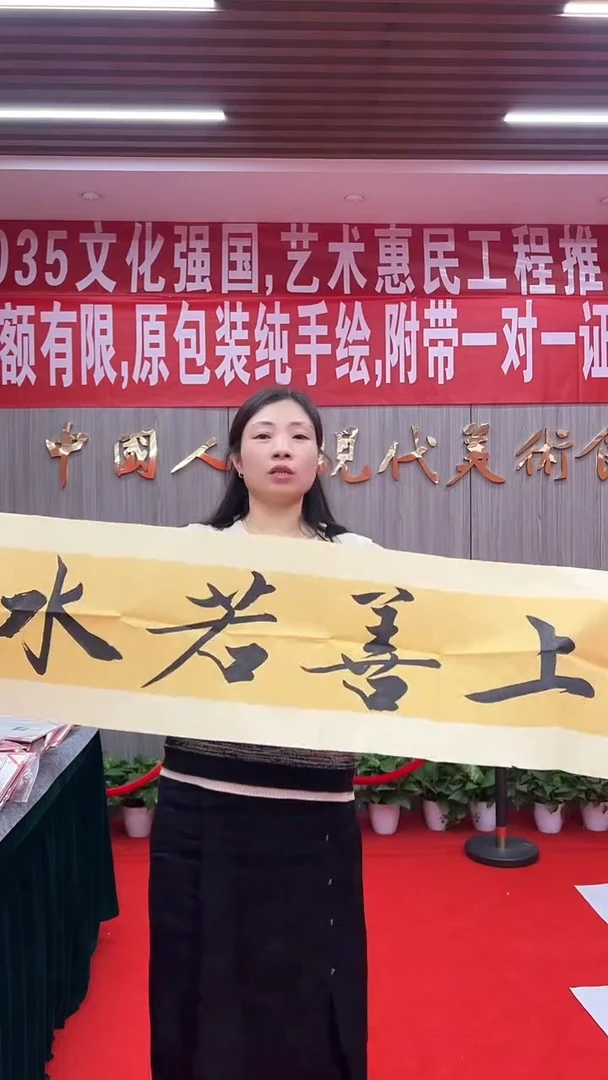 035文化强国,艺术惠民工程推
额有限,原包装纯手绘,附带一对一证
中國人 現代美術館
上善若水